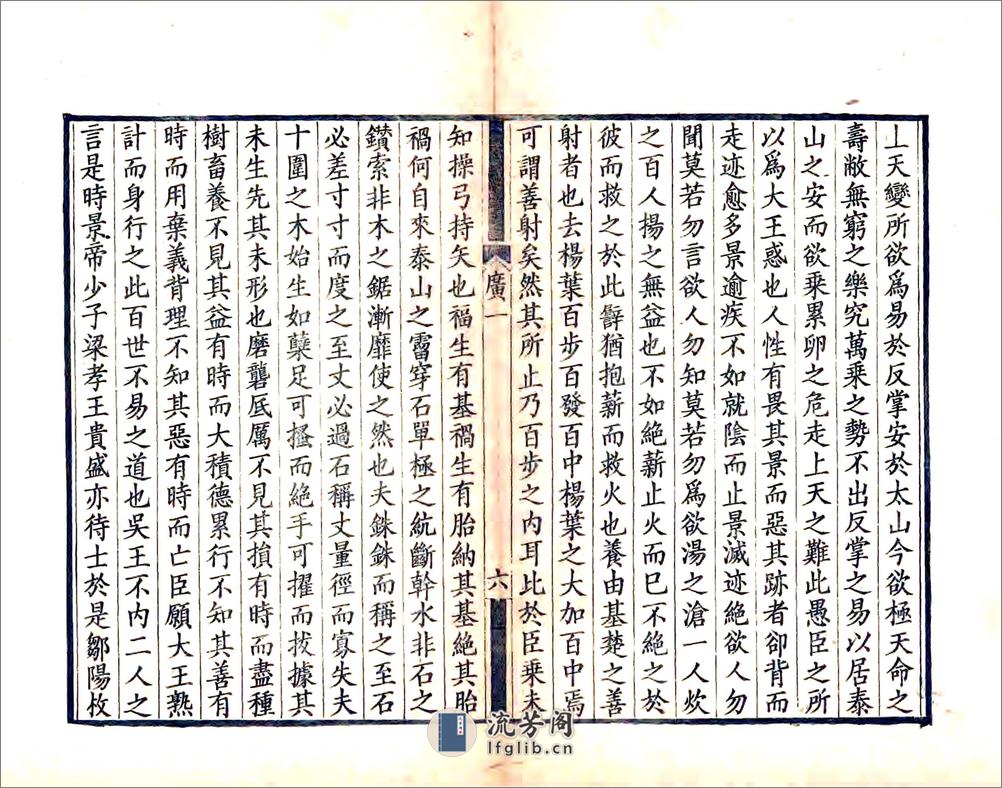 上天變所欲爲易於反掌安於太山今欲極天命之
壽敝無窮之樂究萬乘之勢不出反掌之易以居泰
山之安而欲乘累卵之危走上天之難此愚臣之所
以爲大王惑也人性有畏其景而惡其跡者卻背而
走迹愈多景逾疾不如就陰而止景滅迹絶欲人勿
聞莫若勿言欲人勿知莫若勿爲欲湯之滄一人炊
之百人揚之無益也不如絶薪止火而已不絶之於
彼而救之於此譬猶抱薪而救火也養由基楚之善
射者也去楊葉百步百發百中楊葉之大加百中焉
可謂善射矣然其所止乃百步之内耳比於臣乘未
廣一
六
知操弓持矢也福生有基禍生有胎納其基絶其胎
禍何自來泰山之霤穿石單極之統斷幹水非石之
鑚索非木之鋸漸靡使之然也夫銖銖而稱之至石
必差寸寸而度之至丈必過石稱丈量徑而寡失夫
十圍之木始生如蘖足可搔而絶手可擢而拔據其
未生先其未形也磨礱厎厲不見其損有時而盡種
樹畜養不見其益有時而大積德累行不知其善有
時而用棄義背理不知其惡有時而亡臣願大王熟
計而身行之此百世不易之道也吳王不内二人之
言是時景帝少子梁孝王貴盛亦待士於是鄒陽枚
流芳阁
lfglib.cn